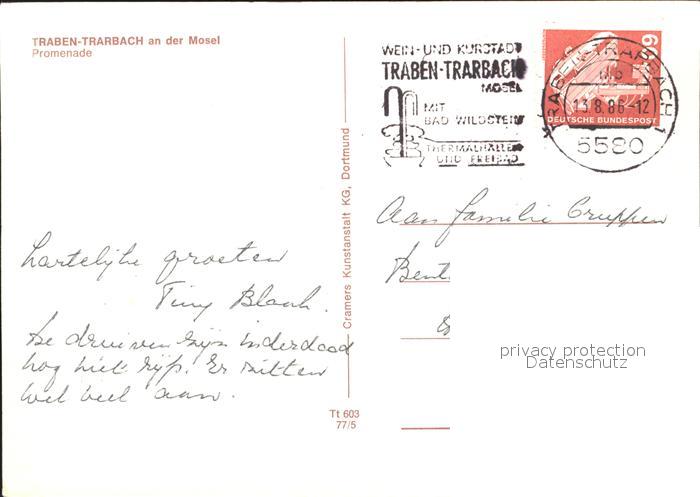 TRABEN-TRARBACH an der Mosel
Promenade
hartelijke groeten
Tiny Blank.
De druiven zijn inderdaad
nog niet rijp. Er zitten
wel veel aan.
Cramers Kunstanstalt KG, Dortmund
Tt 603
77/5
WEIN- UND KURSTADT
TRABEN-TRARBACH
MOSEL
MIT
BAD WILDSTEIN
THERMALHALLEN
UND FREIBAD
60
DEUTSCHE BUNDESPOST
TRABEN-TRARBACH 1
mb
13.8.86-12
5580
Aan familie Cruppen
Bent
privacy protection
Datenschutz